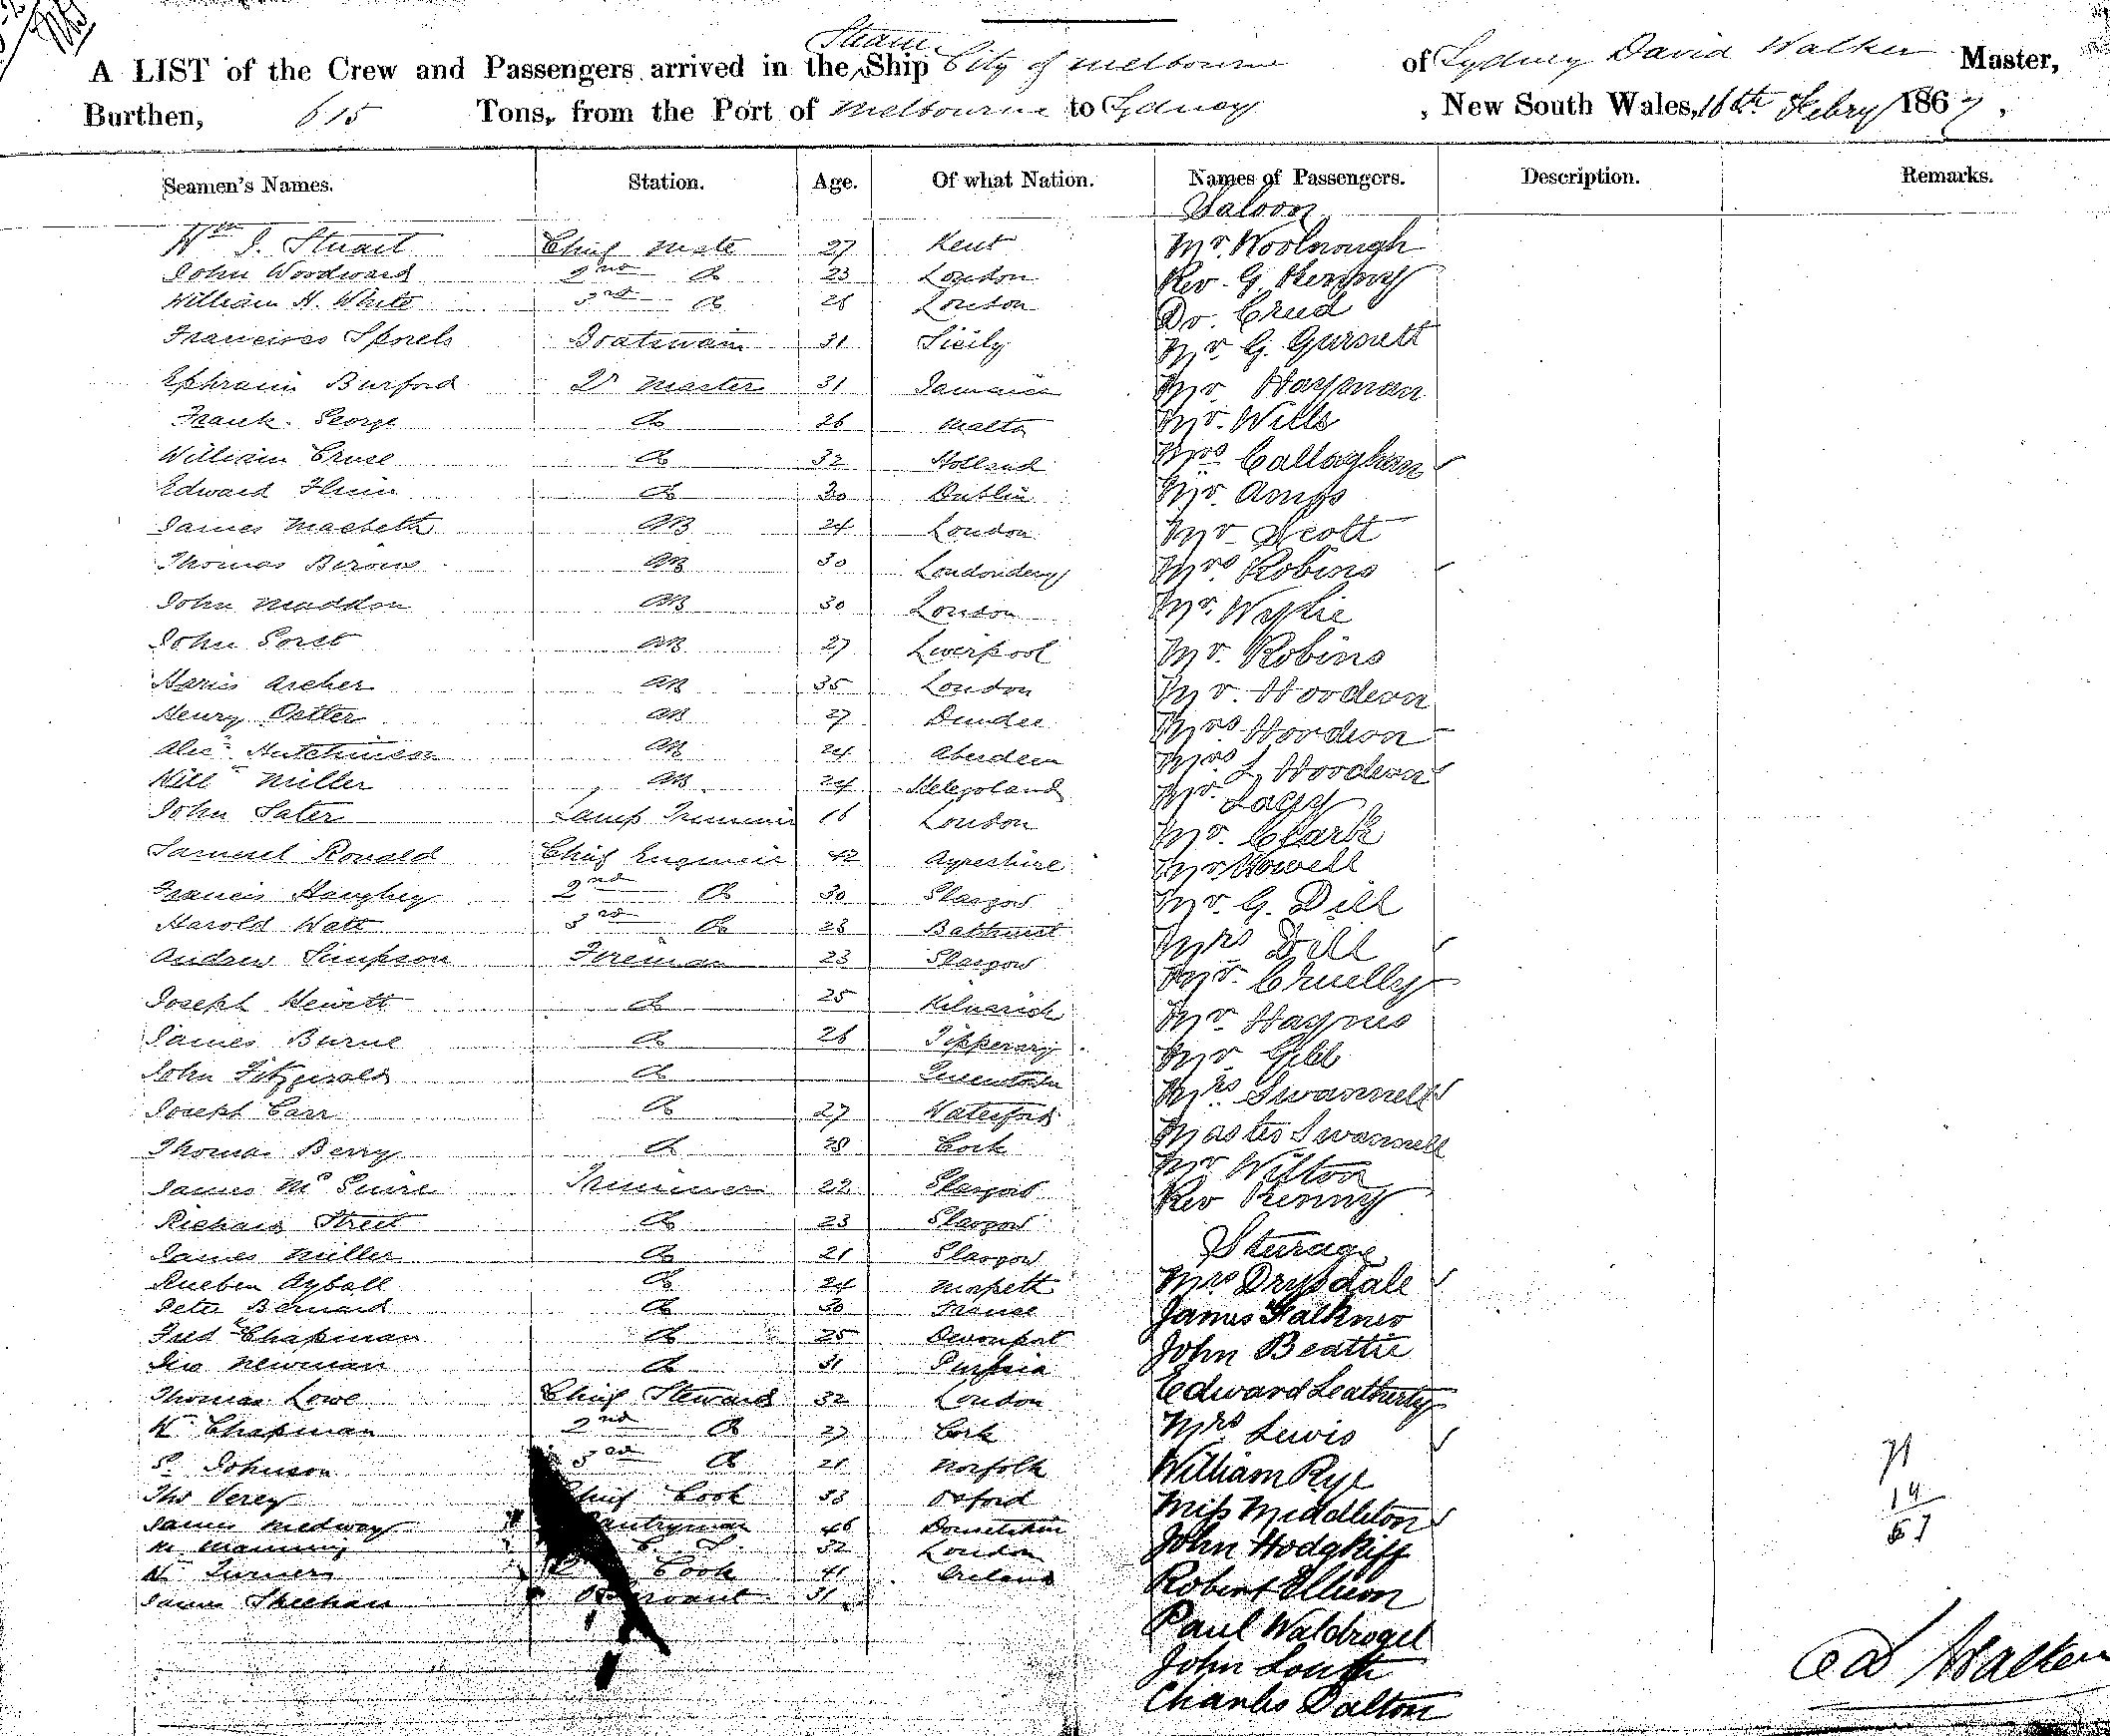 Steam
A LIST of the Crew and Passengers arrived in the Ship City of Melbourne of Sydney David Walker Master,
Burthen, 615 Tons, from the Port of Melbourne to Sydney, New South Wales, 16th Febry 1867,
Seamen's Names. Station. Age. Of what Nation. Names of Passengers. Description. Remarks.
Saloon
Wm J. Stuart Chief Mate 27 Kent Mr. Woolnough
John Woodward 2nd Do 23 London Rev. G.
William H. White 3rd Do London Dr. Creed
Boatswain 31 Sicily Mr. G. Gurnett
Ephraim Burford Qr Master 31 Jamaica Mr Hayman
Frank George Do 26 Malta Mr. Wills
William Cruse Do 32 Holland Mrs Callaghan
Edward Do 30 Dublin Mr. Amps
James Macbeth AB 24 London Mr Scott
Thomas AB 30 Londondery Mrs Robins
John Maddon AB 30 London Mr. Wyllie
John AB 27 Liverpool Mr. Robins
Archer AB 35 London Mr. Hordern
Henry AB 27 Dundee Mrs Hordern
Alexr Hutchinson AB 24 Aberdeen Mrs L Hordern
Willm Miller AB 24 Helegoland Mr.
John Sater Lamp Trimmer 16 London Mr. Clark
Samuel Ronald Chief Engineer 42 Ayreshire Mr Howell
Francis Haughey 2nd Do 30 Glasgow Mr. G. Dill
Harold Watt 3rd Do 23 Bathurst Mrs Dill
Andrew Simpson Fireman 23 Glasgow Mr.
Joseph Hewitt Do 25 Mr Haynes
James Burne Do 26 Tipperary Mr Gibb
John Fitzgerald Do Queenstown Mrs Swannell
Joseph Carr Do 27 Waterford Master Swannell
Thomas Berry Do 28 Cork Mr Wilton
James McGuire Trimmer 22 Glasgow Rev Kenny
Richard Street Do 23 Glasgow Sturage
James Miller Do 21 Glasgow
Rueben Ayball Do 24 Mrs Drysdale
Peter Bernard Do 30 James Falkner
Fredk Chapman Do 25 Devonport John Beattie
Newman Do 31 Edward Leatherty
Thomas Lowe Chief Steward 32 London Mrs Lewis
Wm Chapman 2nd Do 27 Cork William Rye
Johnson 3rd Do 21 Norfolk Miss Middleton
Thos Verey Chief Cook 33 Oxford John Hodgkiss
James Medway Pantryman 46 Robert Ellison
Manning 32 London Paul Waldvogel
Wm Turner Cook 41 Ireland John
James Sheehan Servant 31 Charles Dalton
71
14
57
Walker